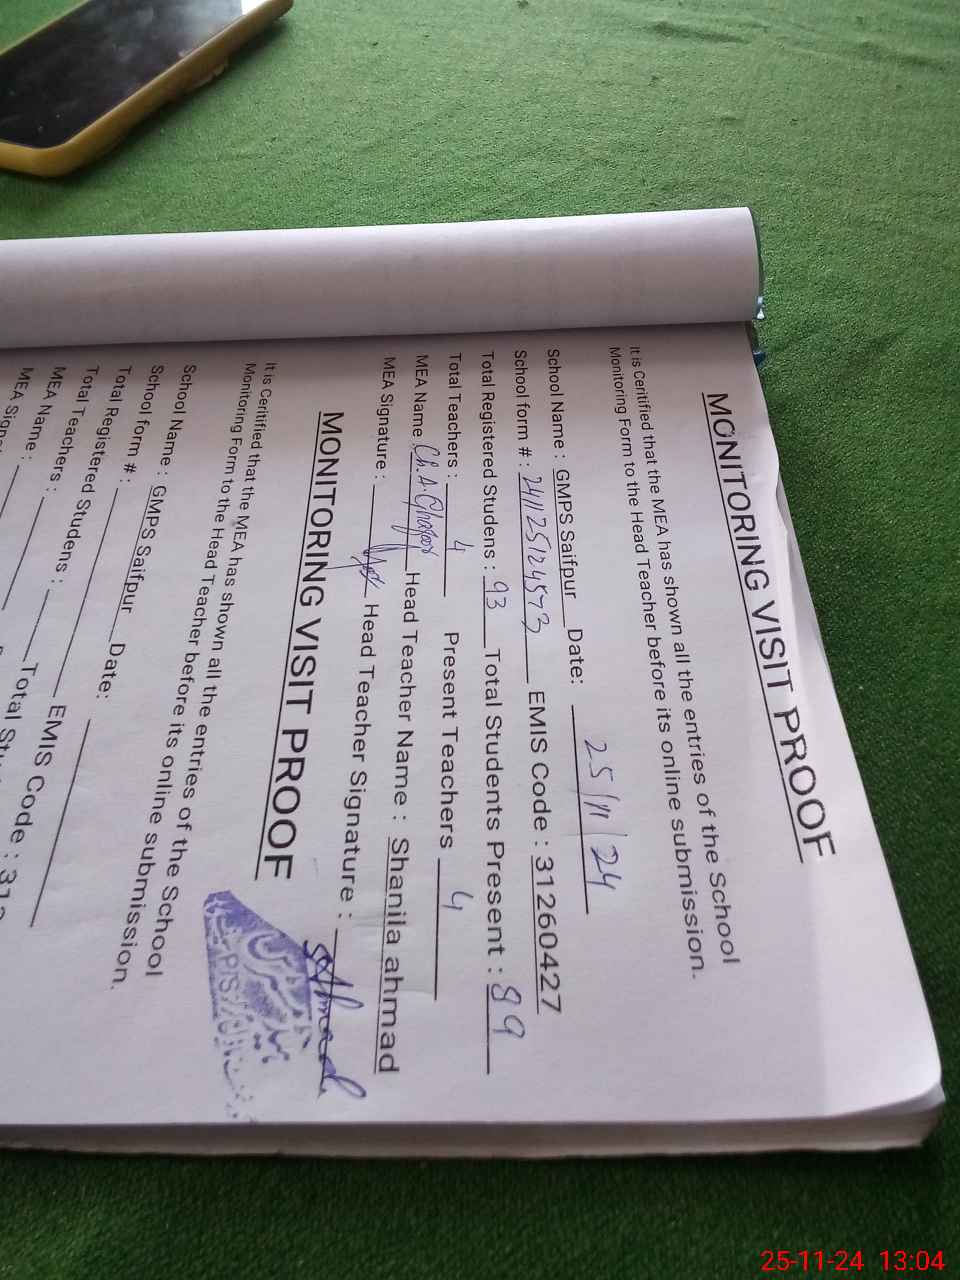 MONITORING VISIT PROOF
It is Ceritified that the MEA has shown all the entries of the School
Monitoring Form to the Head Teacher before its online submission.
School Name : GMPS Saifpur Date: 25/11/24
School form # : 241125124573 EMIS Code : 31260427
Total Registered Studens : 93 Total Students Present : 89
Total Teachers : 4 Present Teachers 4
MEA Name : Ch. A. Ghafoor Head Teacher Name : Shanila ahmad
MEA Signature : Head Teacher Signature : SAhmad
MONITORING VISIT PROOF
It is Ceritified that the MEA has shown all the entries of the School
Monitoring Form to the Head Teacher before its online submission.
School Name : GMPS Saifpur Date:
School form # : EMIS Code : 312
Total Registered Studens : Total Stu
Total Teachers :
MEA Name :
MEA Signa
25-11-24 13:04